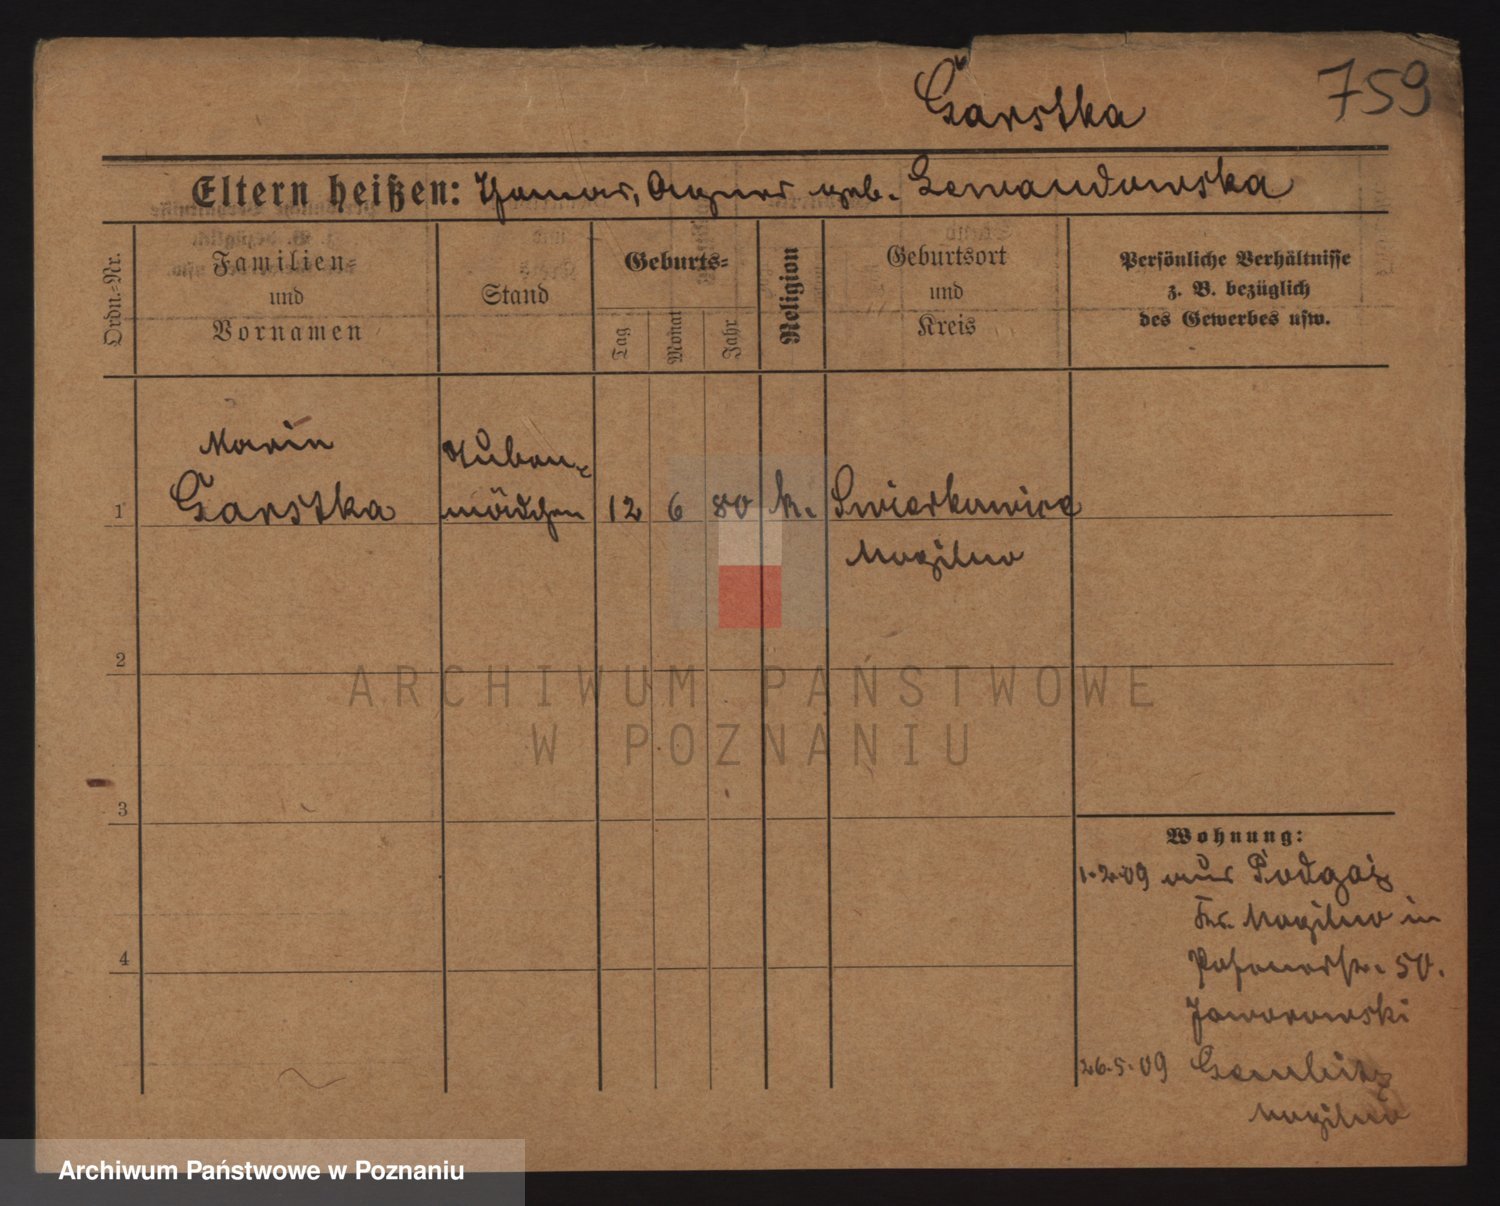 Garstka
759
Eltern heißen: Thomas, Agnes geb. Lewandowska
Ordn.-Nr.
Familien-
und
Vornamen
Stand
Geburts-
Tag
Monat
Jahr
Religion
Geburtsort
und
Kreis
Persönliche Verhältnisse
z. B. bezüglich
des Gewerbes usw.
Marie
Stuben-
1 Garstka mädchen 12 6 80 k. Swierkowiec
Mogilno
2
ARCHIWUM PAŃSTWOWE
W POZNANIU
3
Wohnung:
1.2.09 aus Podgaj
Kr. Mogilno in
4
Posenerstr. 50.
Jaworowski
26.5.09 Gembitz
Mogilno
Archiwum Państwowe w Poznaniu